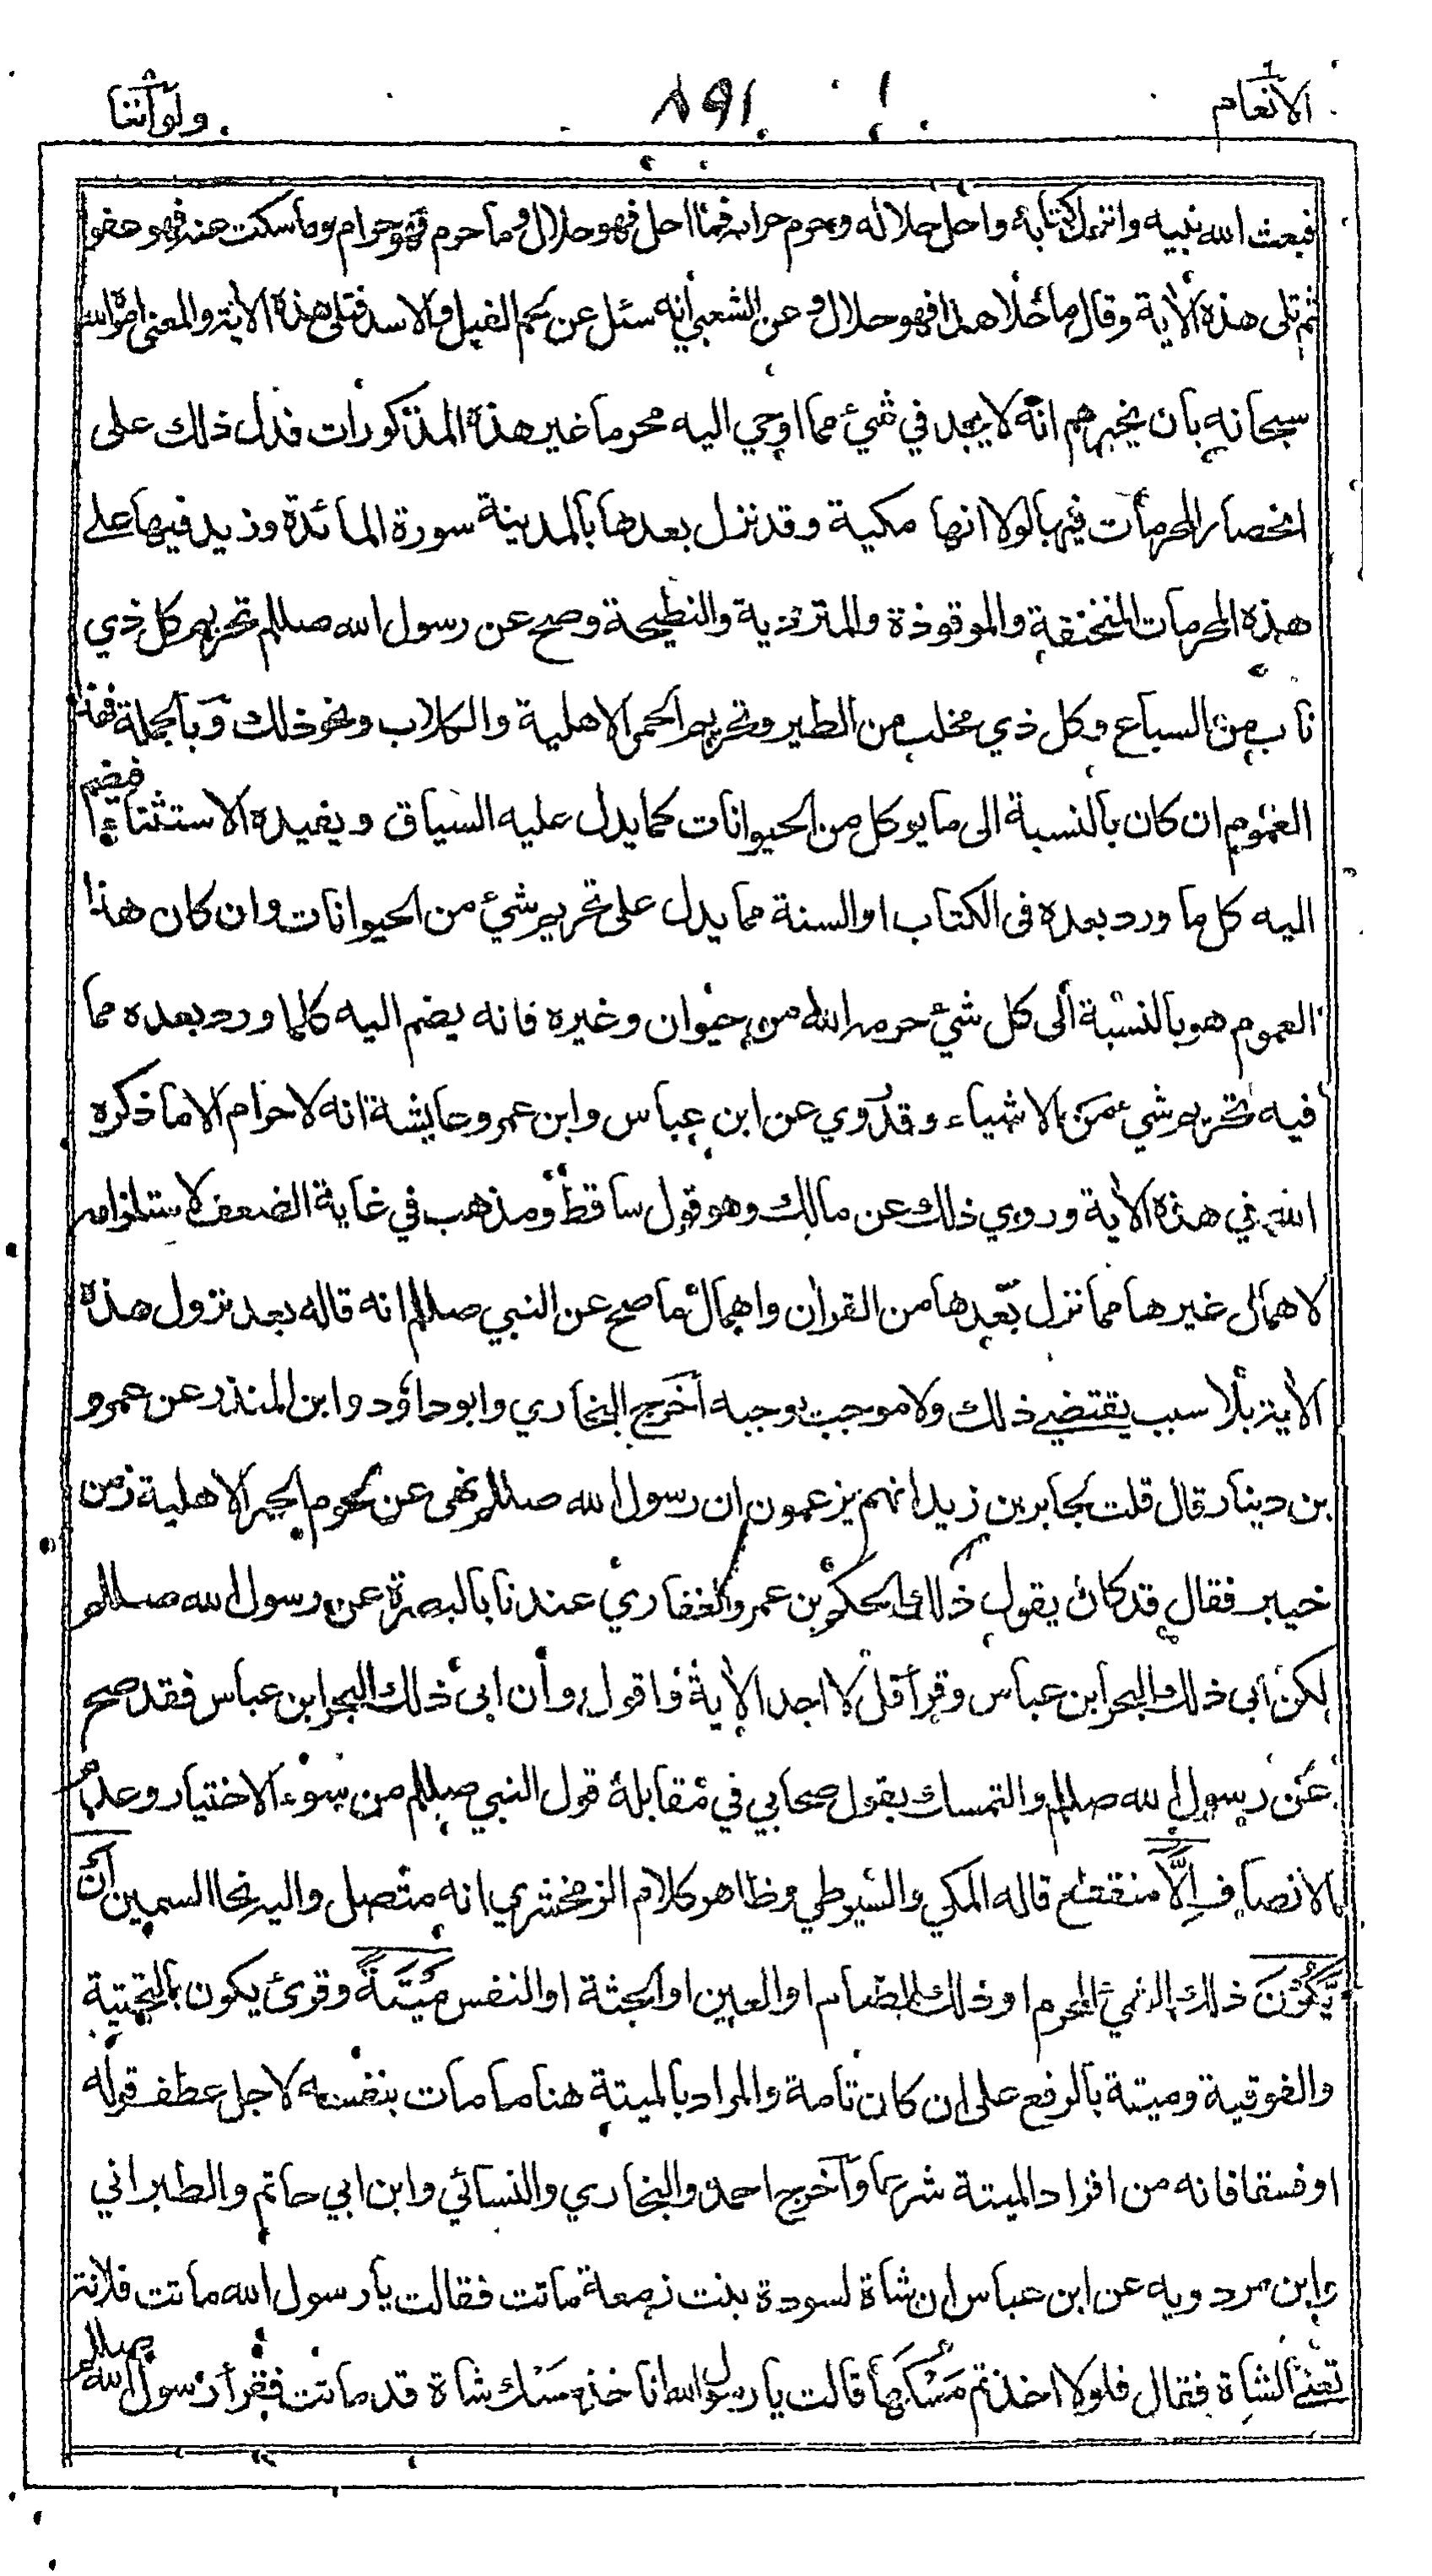 الانعام ٨٩١ ولو اننا
فبعث الله نبيه وانزل كتابه واحل حلاله وحرم حرامه فما احل فهو حلال وما حرم فهو حرام وما سكت عنه فهو عفو
ثم تلى هذه الأية وقال ما خلا هذا فهو حلال وعن الشعبي أنه سئل عن لحم الفيل والاسد فتلى هذه الأية والمعنى امره الله
سبحانه بان يخبرهم انه لا يجد في شيء مما اوحي اليه محرما غير هذه المذكورات فدل ذلك على
انحصار المحرمات فيها لولا انها مكية وقد نزل بعدها بالمدينة سورة المائدة وزيد فيها على
هذه المحرمات المنخنقة والموقوذة والمتردية والنطيحة وصح عن رسول الله صللم تحريم كل ذي
ناب من السباع وكل ذي مخلب من الطير وتحريم الحمر الاهلية والكلاب ونحو ذلك وبالجملة فهذا
العموم ان كان بالنسبة الى ما يوكل من الحيوانات كما يدل عليه السياق ويفيده الاستثناء فيضم
اليه كل ما ورد بعده فى الكتاب او السنة مما يدل على تحريم شيء من الحيوانات وان كان هذا
العموم هو بالنسبة الى كل شيء حرمه الله من حيوان وغيره فانه يضم اليه كلما ورد بعده مما
فيه تحريم شيء من الاشياء وقد روي عن ابن عباس وابن عمر وعايشة انه لا حرام الا ما ذكره
الله في هذه الأية وروي ذلك عن مالك وهو قول ساقط ومذهب في غاية الضعف لاستلزامه
لاهمال غيرها مما نزل بعدها من القرأن واهمال ما صح عن النبي صللم انه قاله بعد نزول هذه
الأية بلا سبب يقتضي ذلك ولا موجب يوجبه أخرج البخاري وابو داؤد وابن المنذر عن عمرو
بن دينار قال قلت لجابر بن زيد انهم يزعمون ان رسول الله صللم نهى عن لحوم الحمر الاهلية زمن
خيبر فقال قد كان يقول ذلك الحكم بن عمرو الغفاري عندنا بالبصرة عن رسول الله صللم
لكن أبى ذلك البحر ابن عباس وقرأ قل لا اجد الأية واقول وأن ابى ذلك البحر ابن عباس فقد صح
عن رسول الله صللم والتمسك بقول صحابي في مقابلة قول النبي صللم من سوء الاختيار وعدم
الانصاف إلَّا منقطع قاله المكي والسيوطي وظاهر كلام الزمخشري انه متصل واليه نحا السمين أن
يَّكُوْنَ ذلك الشيء المحرم او ذلك الطعام او العين او الجثة او النفس مَيْتَةً وقرئ يكون بالتحتية
والفوقية وميتة بالرفع على ان كان تامة والمراد بالميتة هنا ما مات بنفسه لاجل عطف قوله
او فسقا فانه من افراد الميتة شرعا وأخرج احمد والبخاري والنسائي وابن ابي حاتم والطبراني
وابن مردويه عن ابن عباس ان شاة لسودة بنت زمعة ماتت فقالت يا رسول الله ماتت فلانة
تعني الشاة فقال فلولا اخذتم مَسْكَها قالت يا رسول الله اناخذ مَسْك شاة قد ماتت فقرأ رسول الله صللم